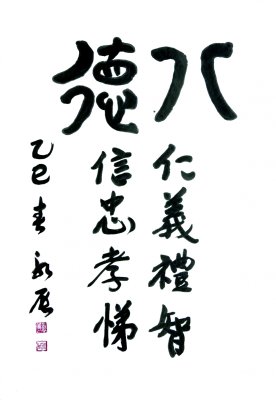 八德
仁義禮智
信忠孝悌
乙巳春永辰